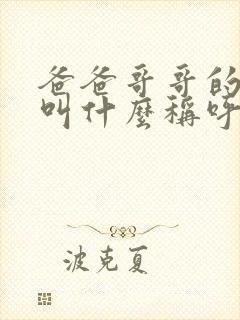 爸爸哥哥的
叫什麼稱呼
波克夏